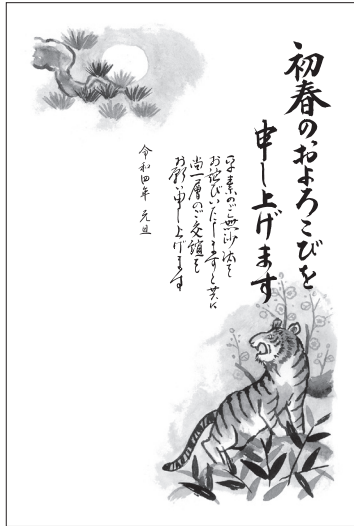 初春のおよろこびを
申し上げます
平素のご無沙汰を
お詫びいたしますと共に
尚一層のご交誼を
お願い申し上げます
令和四年 元旦